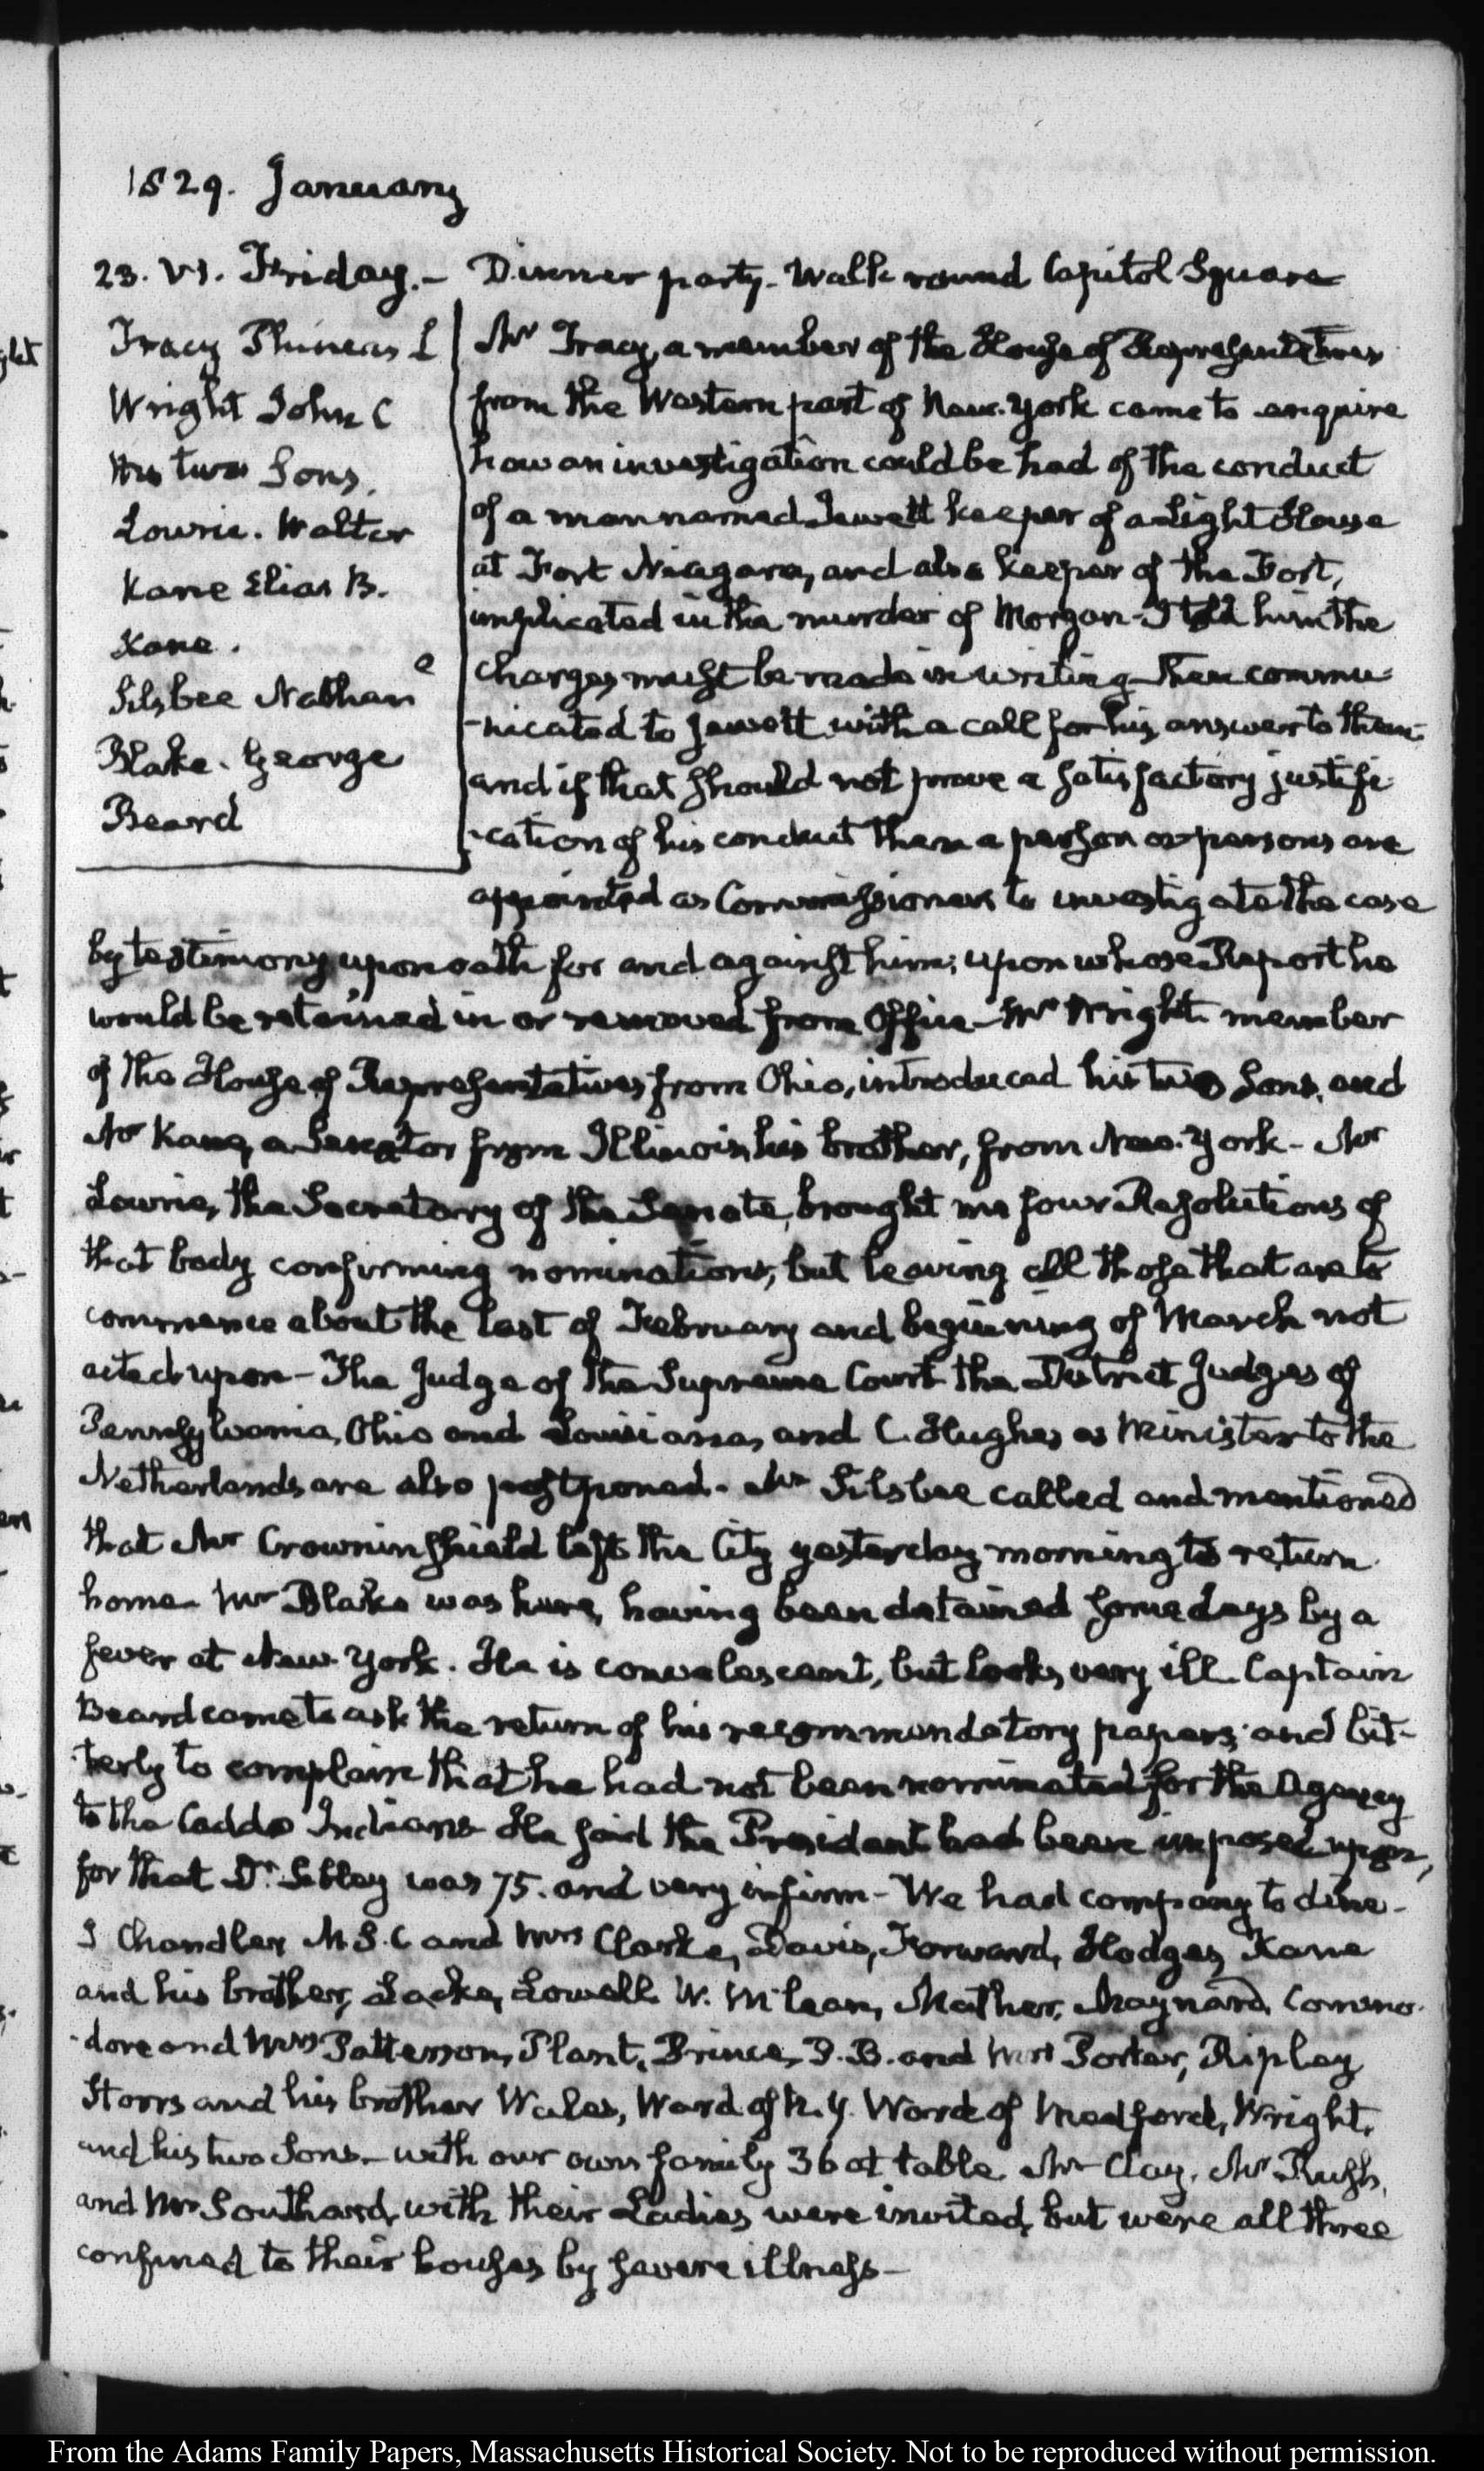 1829. January
23. VI. Friday.- Dinner party. Walk round Capitol Square
Tracy Phineas L
Wright John C
His two Sons.
Lowrie. Walter
Kane Elias B.
Kane.
Silsbee Nathan e
Blake. George
Beard
Mr Tracy, a member of the House of Representatives
from the Western part of New-York came to enquire
how an investigation could be had of the conduct
of a man named Jewett keeper of a Light House
at Fort Niagara, and also keeper of the Fort,
implicated in the murder of Morgan- I told him the
charges must be made in writing- then commu-
-nicated to Jewett with a call for his answer to them-
and if that should not prove a satisfactory justifi-
-cation of his conduct then a person or persons are
appointed as Commissioners to investigate the case
by testimony upon oath for and against him; upon whose Report he
would be retained in or removed from Office- Mr Wright member
of the House of Representatives from Ohio, introduced his two Sons, and
Mr Kane, a Senator from Illinois, his brother, from New-York- Mr
Lowrie, the Secretary of the Senate, brought me four Resolutions of
that body confirming nominations, but leaving all those that are to
commence about the last of February and beginning of March not
acted upon- The Judge of the Supreme Court the District Judges of
Pennsylvania, Ohio and Louisiana, and C. Hughes as Minister to the
Netherlands are also postponed. Mr Silsbee called and mentioned
that Mr Crowninshield left the City yesterday morning to return
home- Mr Blake was here, having been detained some days by a
fever at New-York. He is convalescent, but looks very ill. Captain
Beard came to ask the return of his recommendatory papers; and bit-
-terly to complain that he had not been nominated for the Agency
to the Caddo Indians- He said the President had been imposed upon,
for that Dr. Sibley was 75. and very infirm- We had company to dine-
J Chandler, M. S. C and Mrs Clarke, Davis, Forward, Hodges, Kane
and his brother, Locke, Lowell. W. McLean, Mather, Maynard, Commo-
-dore and Mrs Patterson, Plant, Prince, P. B. and Mrs Porter, Ripley
Storrs and his brother Wales, Ward of N. Y. Ward of Medford, Wright,
and his two Sons- with our own family 36 at table Mr Clay, Mr Rush,
and Mr Southard, with their Ladies were invited, but were all three
confined to their houses by severe illness-
From the Adams Family Papers, Massachusetts Historical Society. Not to be reproduced without permission.